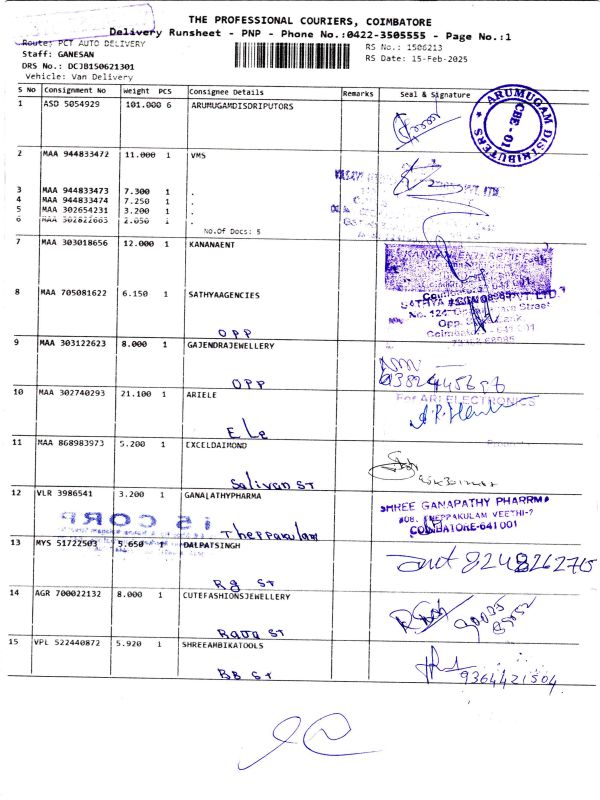 THE PROFESSIONAL COURIERS, COIMBATORE
Delivery Runsheet - PNP - Phone No.:0422-3505555 - Page No.:1
Route: PCT AUTO DELIVERY
RS No.: 1506213
Staff: GANESAN
RS Date: 15-Feb-2025
DRS No.: DCJB150621301
Vehicle: Van Delivery
S No Consignment No Weight PCS Consignee Details Remarks Seal & Signature
1 ASD 5054929 101.000 6 ARUMUGAMDISDRIPUTORS
ARUMUGAM DISTRIBUTERS
CBE - 01
2 MAA 944833472 11.000 1 VMS
3 MAA 944833473 7.300 1 .
4 MAA 944833474 7.250 1 .
5 MAA 302654231 3.200 1 .
6 MAA 302822665 2.050 1 .
No.Of Docs: 5
7 MAA 303018656 12.000 1 KANANAENT
8 MAA 705081622 6.150 1 SATHYAAGENCIES
SATHYA PVT. LTD.
No. 124 Street
Opp Bank
Coimbatore - 641 001
OPP
9 MAA 303122623 8.000 1 GAJENDRAJEWELLERY
OPP
10 MAA 302740293 21.100 1 ARIELE
For ARI ELECTRONICS
Ele
11 MAA 868983973 5.200 1 EXCELDAIMOND
Salivan St
12 VLR 3986541 3.200 1 GANALATHYPHARMA
SHREE GANAPATHY PHARMA
THEPPAKULAM VEETHI-
COIMBATORE-641001
Theppakulam
13 MYS 51722503 5.650 1 DALPATSINGH
8248262715
Rg St
14 AGR 700022132 8.000 1 CUTEFASHIONSJEWELLERY
Raja St
15 VPL 522440872 5.920 1 SHREEAMBIKATOOLS
9364421504
BB St